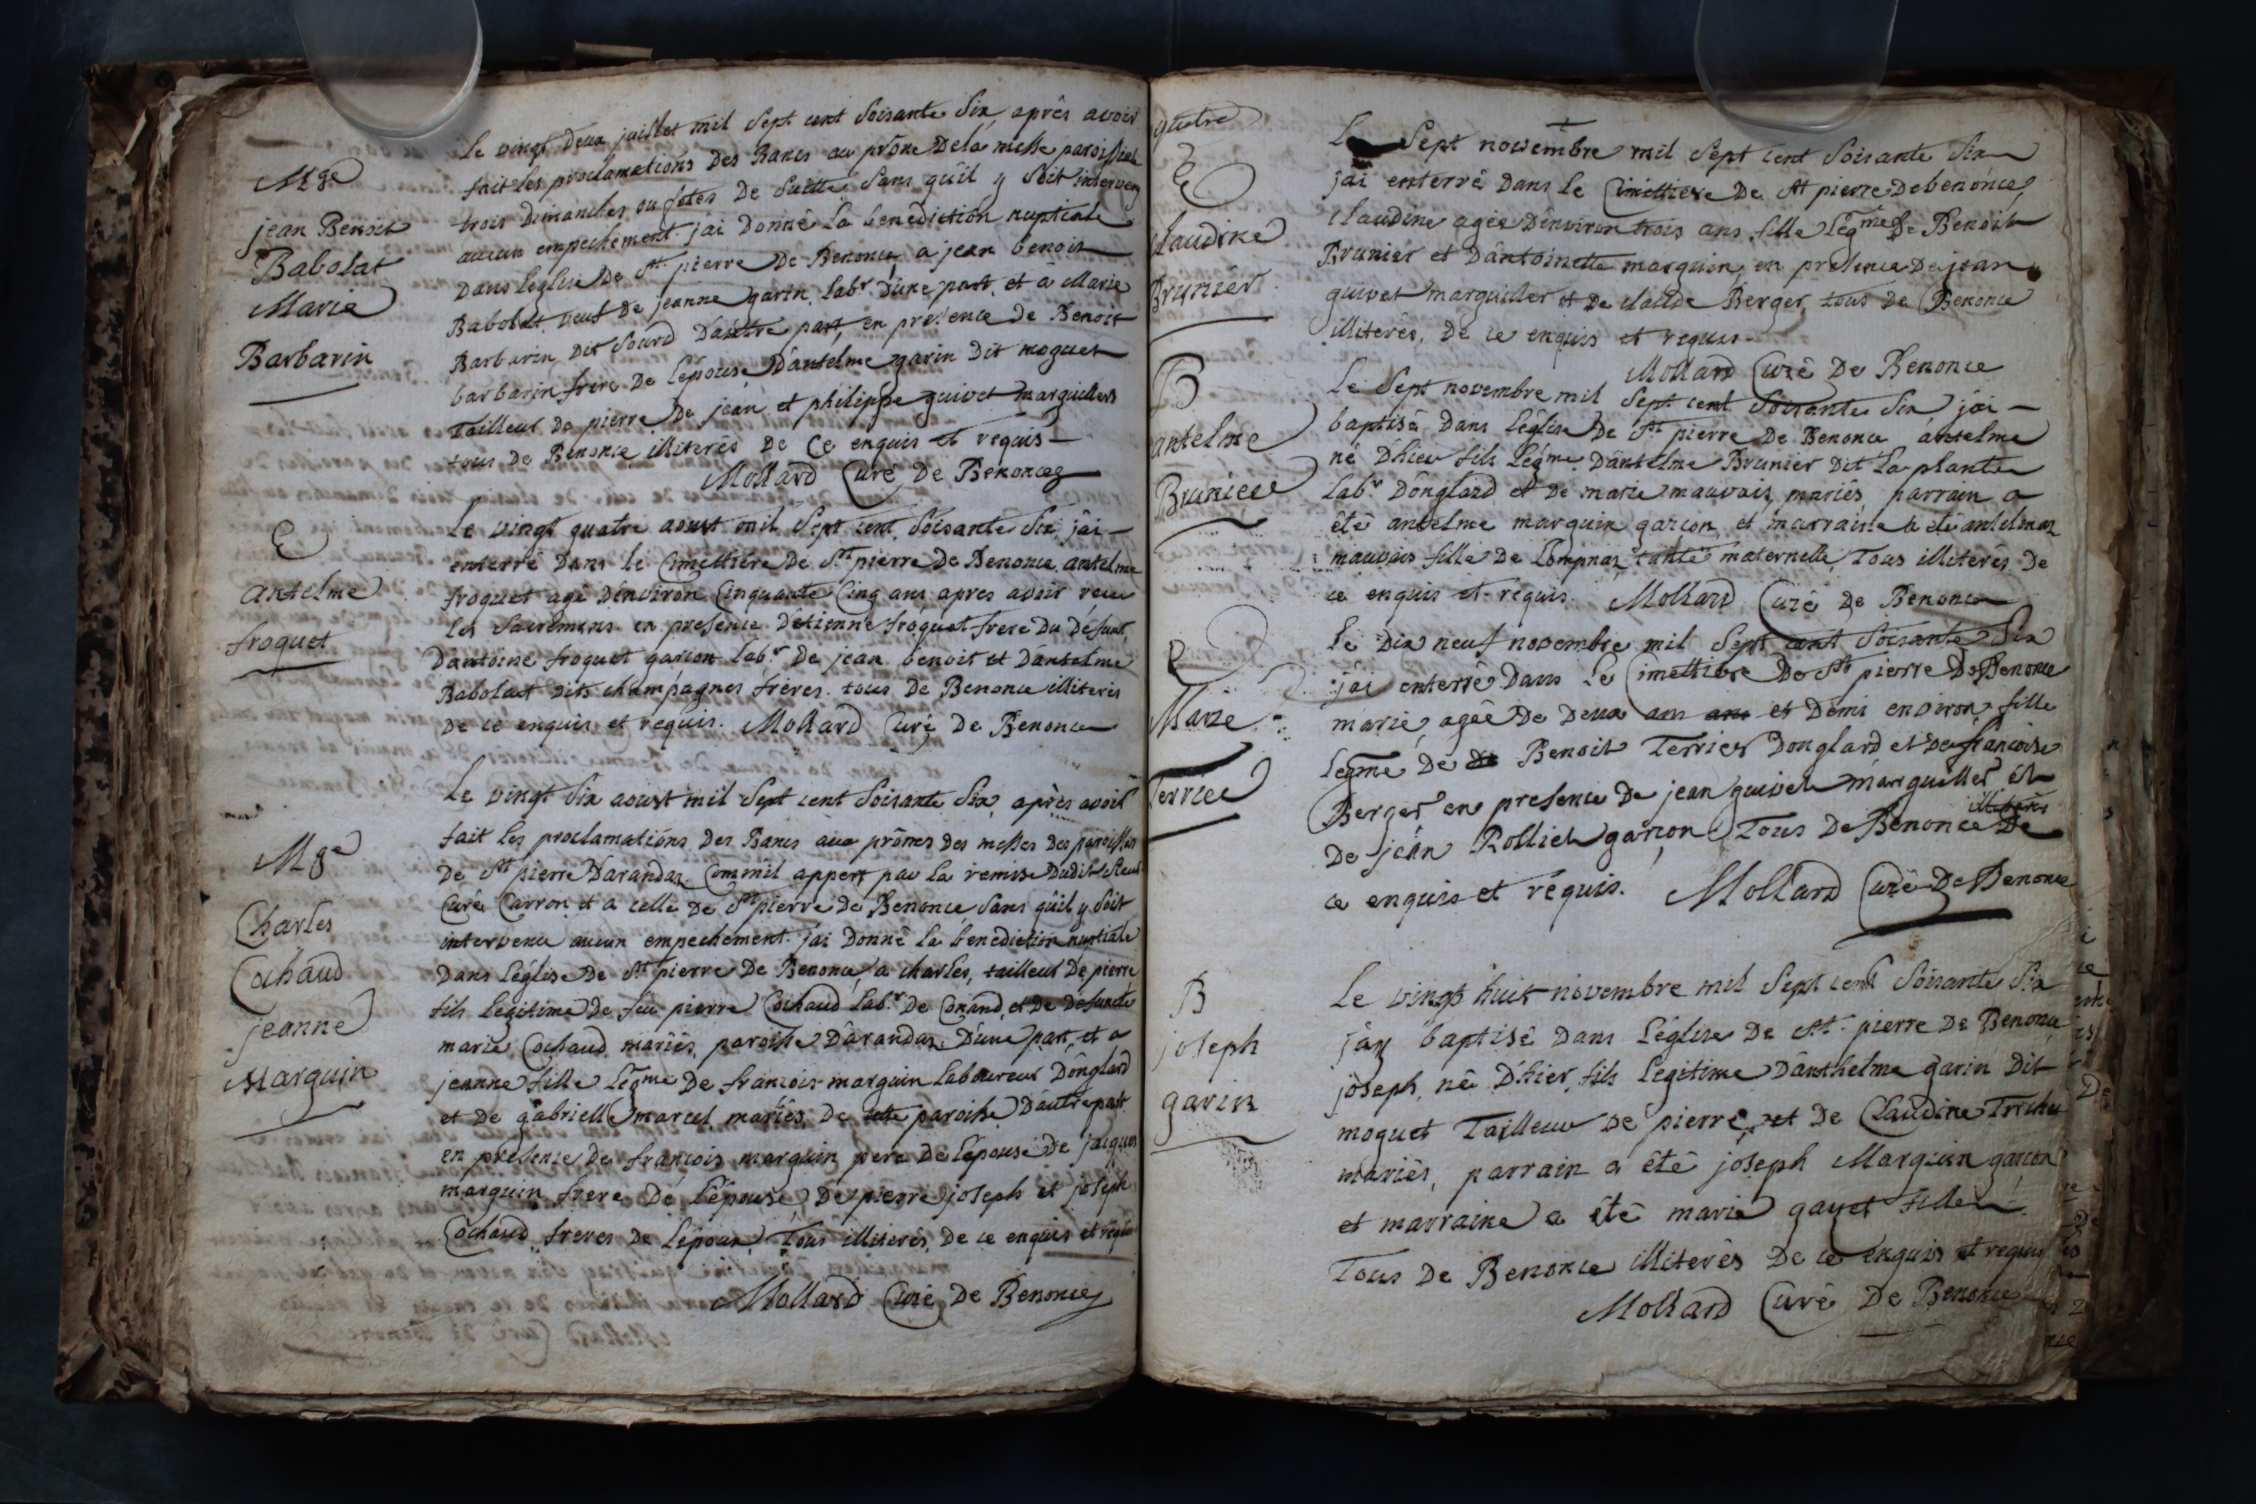 Mge
jean Benoit
Babolat
Marie
Barbarin
le vingt deux juillet mil sept cent soisante six après avoir
fait les proclamations des Bancs au prône de la messe paroissiale
trois dimanches ou fêtes de suitte, sans qu'il y soit intervenu
aucun empechement j'ai donné la benediction nuptiale
dans l'eglise de St pierre de Benonce, a jean benoit
Babolat veuf de jeanne garin, labr d'une part, et à Marie
Barbarin dit sourd d'autre part, en présence de Benoit
barbarin frere de l'épouse, d'antelme garin dit moguet
tailleur de pierre, de jean et philippe guivet marguillers
tous de Benonce illiterés de ce enquis et requis
Mollard Curé de Benonce
E
antelme
froquet
Le vingt quatre aoust mil sept cent soisante six, j'ai
enterré dans le Cimettiére de St pierre de Benonce antelme
froquet agé d'environ Cinquante Cinq ans apres avoir reçu
les sacremens en présence d'étienne froquet frere du défunt
d'antoine froquet garcon labr de jean benoit et d'antelme
Babolat dits champagnes frères tous de Benonce illiterés
de ce enquis et requis. Mollard Curé de Benonce
Mge
Charles
Cochaud
jeanne
Marguin
Le vingt six aoust mil sept cent soisante six, après avoir
fait les proclamations des Bancs aux prônes des messes des paroisses
de St pierre d'arandas, Comm'il appert par la remise dudit sieur
Curé Carron, et a celle de St pierre de Benonce, sans qu'il y soit
intervenu aucun empechement j'ai donné la benediction nuptiale
dans l'église de St pierre de Benonce, a charles, tailleur de pierre
fils legitime de feu pierre Cochaud labr de Conand, et de defuncte
marie Cochaud mariés, paroisse d'arandas d'une part, et a
jeanne fille legme de francois marguin laboureur d'onglard
et de gabrielle marcel mariés, de cette paroisse d'autre part
en présence de francois marguin pere de l'épouse de jacques
marguin frere de l'épouse, de pierre joseph et joseph
Cochaud freres de l'époux, Tous illiterés, de ce enquis et requis
Mollard Curé de Benonce
E
claudine
Brunier
Le sept novembre mil sept cent soisante six
jai enterré dans le Cimettiere de St pierre de benonce,
claudine agée d'environ trois ans fille légme de Benoit
Brunier et d'antoinette marguin, en présence de jean
guivet marguiller et de claude Berger, tous de Benonce
illiterés, de ce enquis et requis
Mollard Curé de Benonce
B
antelme
Brunier
Le sept novembre mil sept cent soisante six j'ai
baptisé dans l'église de St pierre de Benonce antelme
né d'hier fils légme d'antelme Brunier dit la plante
labr d'onglard et de marie mauvais mariés, parrain a
été antelme marguin garcon, et marraine a été antelmaz
mauvais fille de lompnaz tante maternelle, Tous illiterés de
ce enquis et requis. Mollard Curé de Benonce
E
Marie
Terrier
le dix neuf novembre mil sept cent soisante six
j'ai enterré dans le Cimettiere de St pierre de Benonce
marie, agée de deux ans et demi environ, fille
legme de Benoit Terrier d'onglard et de francoise
Berger en présence de jean guivet marguiller et
de jean Rolliet garcon, Tous de Benonce illiterés de
ce enquis et requis. Mollard Curé de Benonce
B
joseph
garin
Le vingt huit novembre mil sept cent soisante six
j'ay baptisé dans l'église de St pierre de Benonce
joseph, né d'hier, fils légitime d'anthelme garin dit
moquet Tailleur de pierre, et de Claudine Trichu
mariés, parrain a été joseph Marguin garcon
et marraine a été marie gayet fille
Tous de Benonce illiterés de ce enquis et requis
Mollard Curé de Benonce